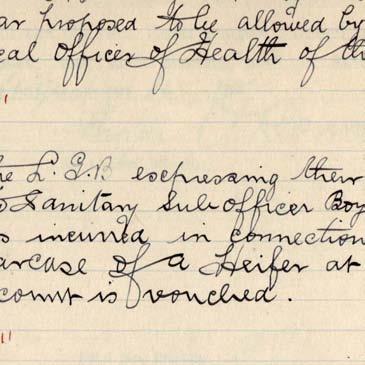 ar proposed to be allowed by
cal Officer of Health of th
"
he L. G. B expressing their
to Sanitary Sub officer Boy
s incurred in connection
arcase of a Heifer at
count is vouched.
"